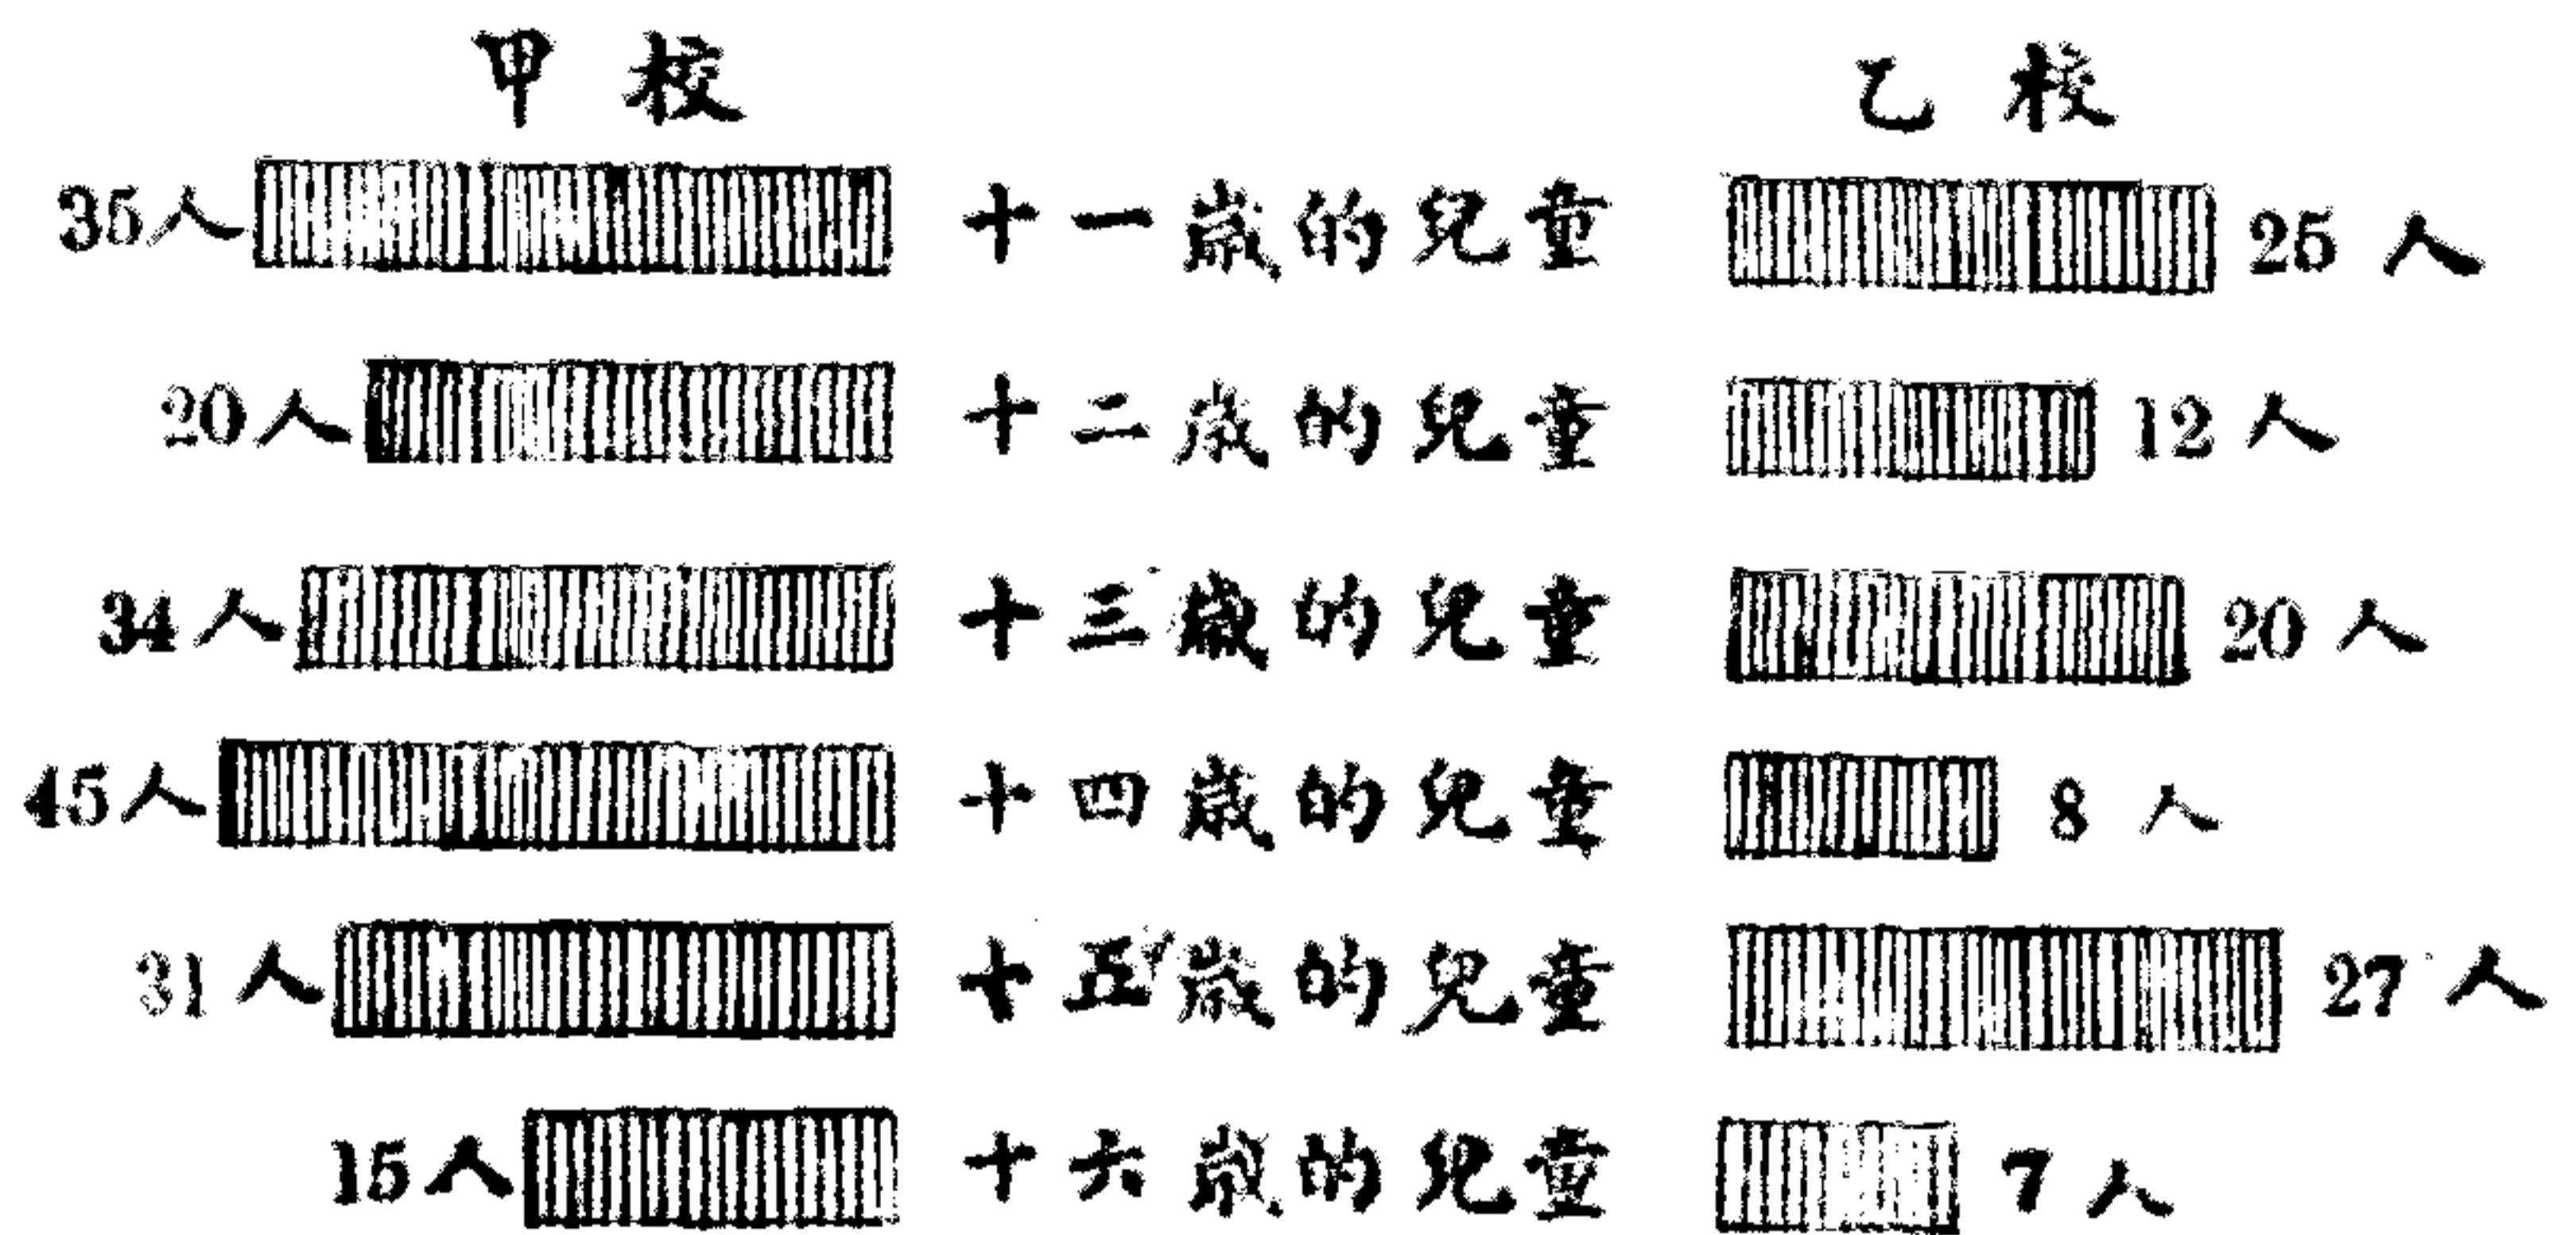 甲校 乙校
35人 十一歲的兒童 25人
20人 十二歲的兒童 12人
34人 十三歲的兒童 20人
45人 十四歲的兒童 8人
31人 十五歲的兒童 27人
15人 十六歲的兒童 7人